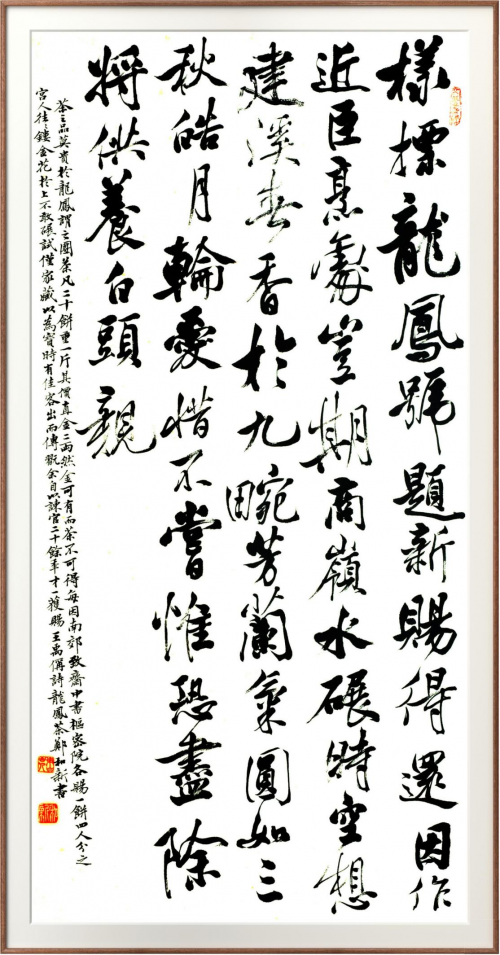 樣標龍鳳號題新賜得還因作
近臣烹處豈期商嶺水碾時空想
建溪春香於九畹芳蘭氣圓如三
秋皓月輪愛惜不嘗惟恐盡除
將供養白頭親
茶之品莫貴於龍鳳謂之團茶凡二十餅重一斤其價真金二兩然金可有而茶不可得每因南郊致齋中書樞密院各賜一餅四人分之
宮人往々鏤金花於上不敢碾試僅家藏以為寶時有佳客出而傳翫余自以諫官二十餘年才一獲賜王禹偁詩龍鳳茶鄭和新書